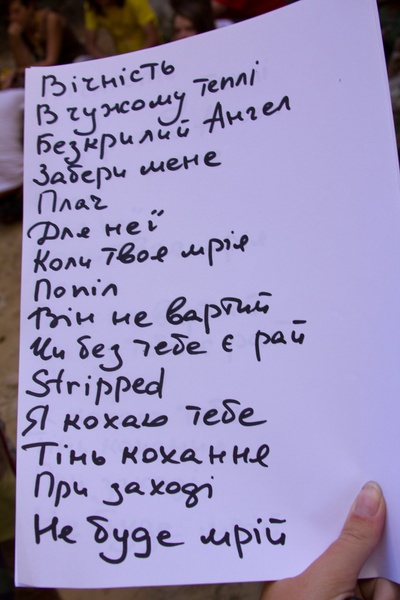 Вічність
В чужому теплі
Безкрилий Ангел
Забери мене
Плач
Для неї
Коли твоя мрія
Попіл
Він не вартий
Чи без тебе є рай
Stripped
Я кохаю тебе
Тінь кохання
При заході
Не буде мрій